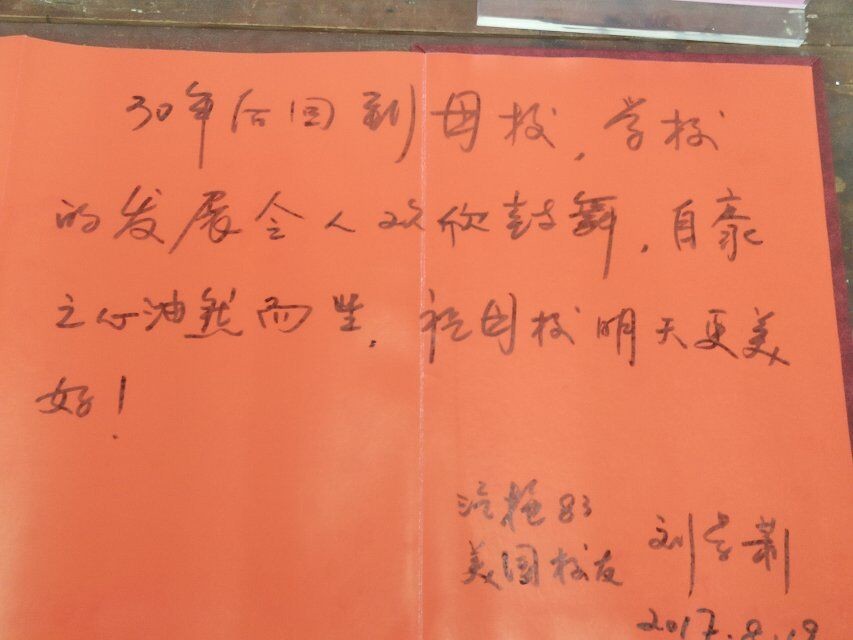 30年后回到母校,学校
的发展令人欢欣鼓舞,自豪
之心油然而生,祝母校明天更美
好!
汽 83
美国校友
刘
2017.